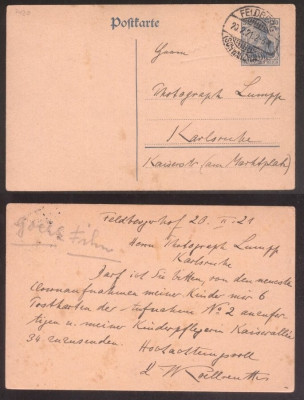 Postkarte
Herrn
Photograph Lumpp
Karlsruhe
Kaiserstr. (am Marktplatz)
FELDBERG
Feldbergerhof 20 II. 21
Herrn Photograph Lumpp
Karlsruhe
Darf ich Sie bitten, von den neueste
Aufnahmen meiner Kinder mir 6
Postkarten der Aufnahme No 2 anzufer
tigen u. meiner Kinderpflegerin Kaiserallee
34 zuzusenden.
Hochachtungsvoll